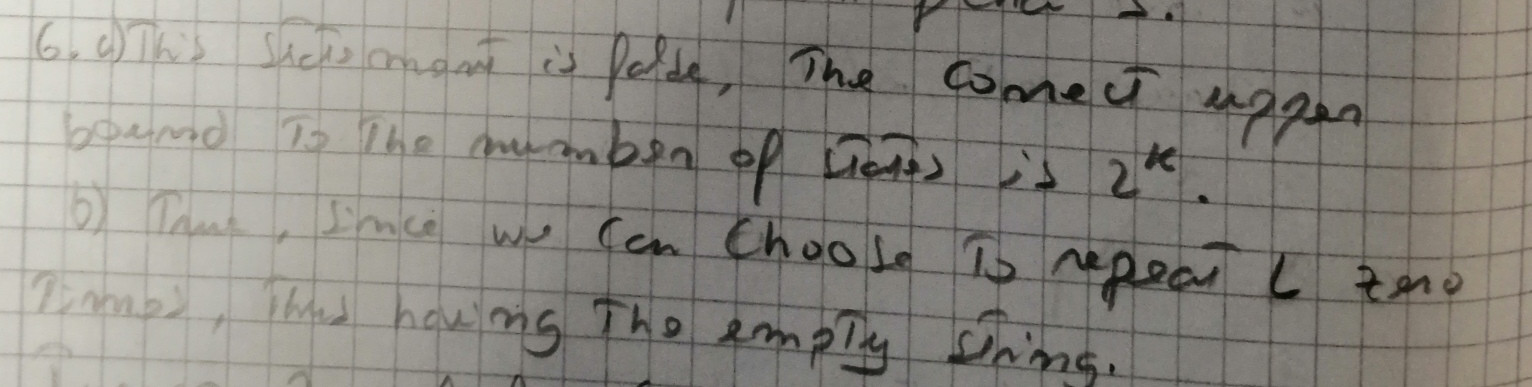 6. a) This statement is false, The correct upper
bound to the number of states is 2^k.
b) True, since we can choose to repeat L zero
times, thus having the empty string.